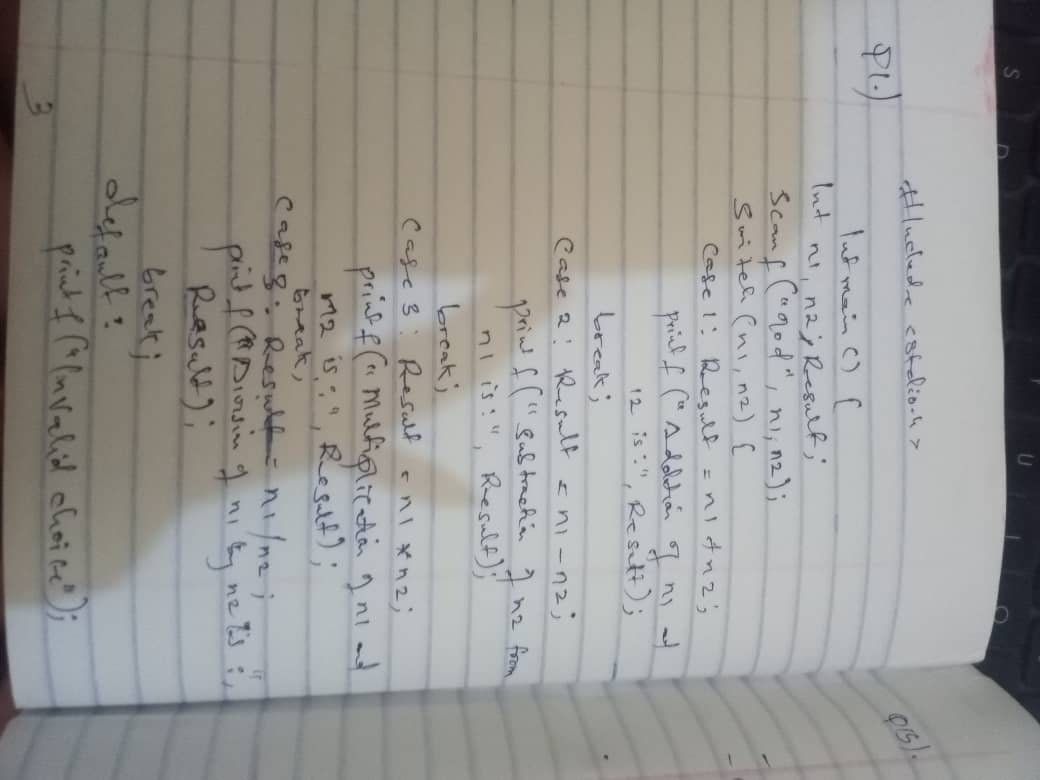 Q1.)
#Include <stdio.h>
Int main () {
Int n1, n2, Result;
Scanf ("%d", n1, n2);
Switch (n1, n2) {
Case 1: Result = n1 + n2;
printf ("Addition of n1 and
12 is:", Result);
break;
Case 2: Result = n1 - n2;
printf ("Subtraction of n2 from
n1 is:", Result);
break;
Case 3: Result = n1 * n2;
printf ("Multiplication of n1 and
n2 is:", Result);
break;
Case 8: Result = n1/n2;
printf ("Division of n1 by n2 is:",
Result);
break;
default:
printf ("Invalid choice");
3
Q15).
S
D
U
I
O